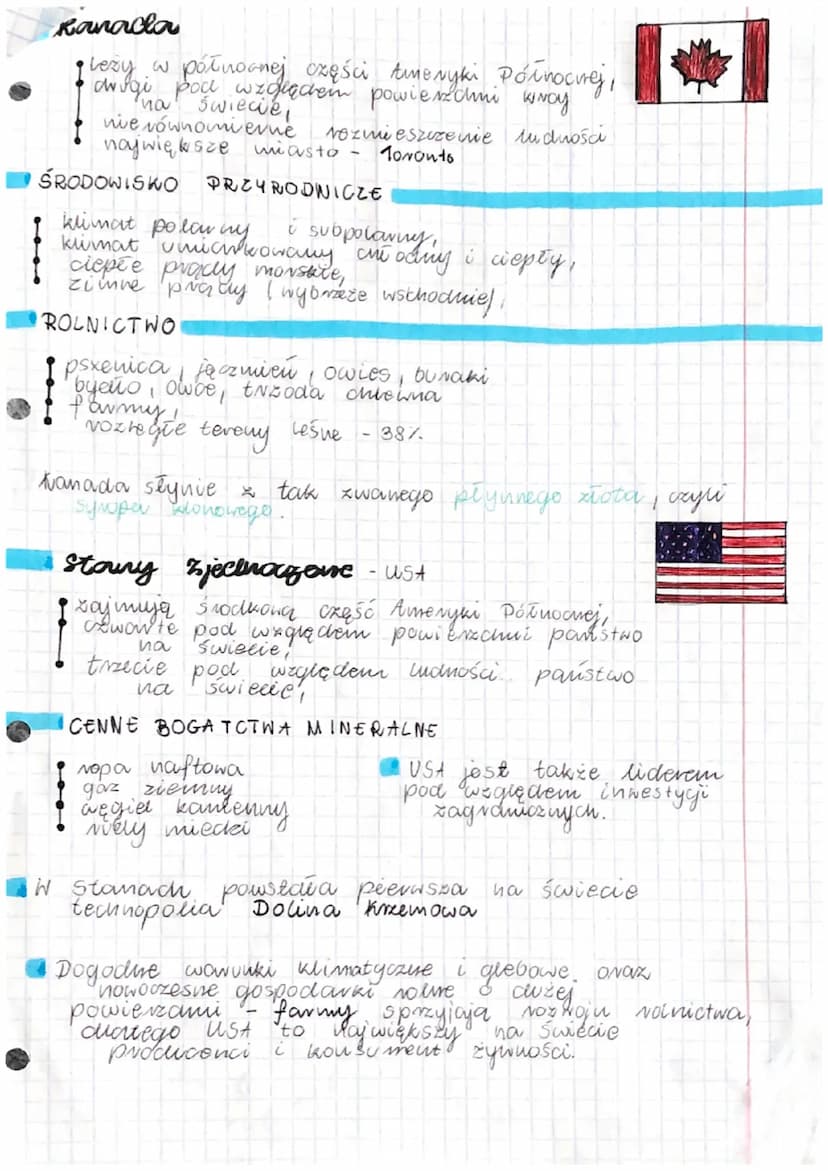 Kanada
leży w północnej części Ameryki Północnej,
drugi pod względem powierzchni kraj
na świecie,
nierównomierne rozmieszczenie ludności
największe miasto - Toronto
ŚRODOWISKO PRZYRODNICZE
klimat polarny i subpolarny,
klimat umiarkowany chłodny i ciepły,
ciepłe prądy morskie,
zimne prądy (wybrzeże wschodnie),
ROLNICTWO
pszenica, jęczmień, owies, buraki
bydło, owce, trzoda chlewna
farmy,
rozległe tereny leśne - 38%
Kanada słynie z tak zwanego płynnego złota, czyli
syropu klonowego.
Stany Zjednoczone - USA
zajmują środkową część Ameryki Północnej,
czwarte pod względem powierzchni państwo
na świecie,
trzecie pod względem ludności państwo
na świecie,
CENNE BOGATCTWA MINERALNE
ropa naftowa
gaz ziemny
węgiel kamienny
rudy miedzi
USA jest także liderem
pod względem inwestycji
zagranicznych.
W Stanach powstała pierwsza na świecie
technopolia Dolina Krzemowa
Dogodne warunki klimatyczne i glebowe oraz
nowoczesne gospodarki rolne o dużej
powierzchni - farmy sprzyjają rozwoju rolnictwa,
dlatego USA to największy na świecie
producenci i konsument żywności.